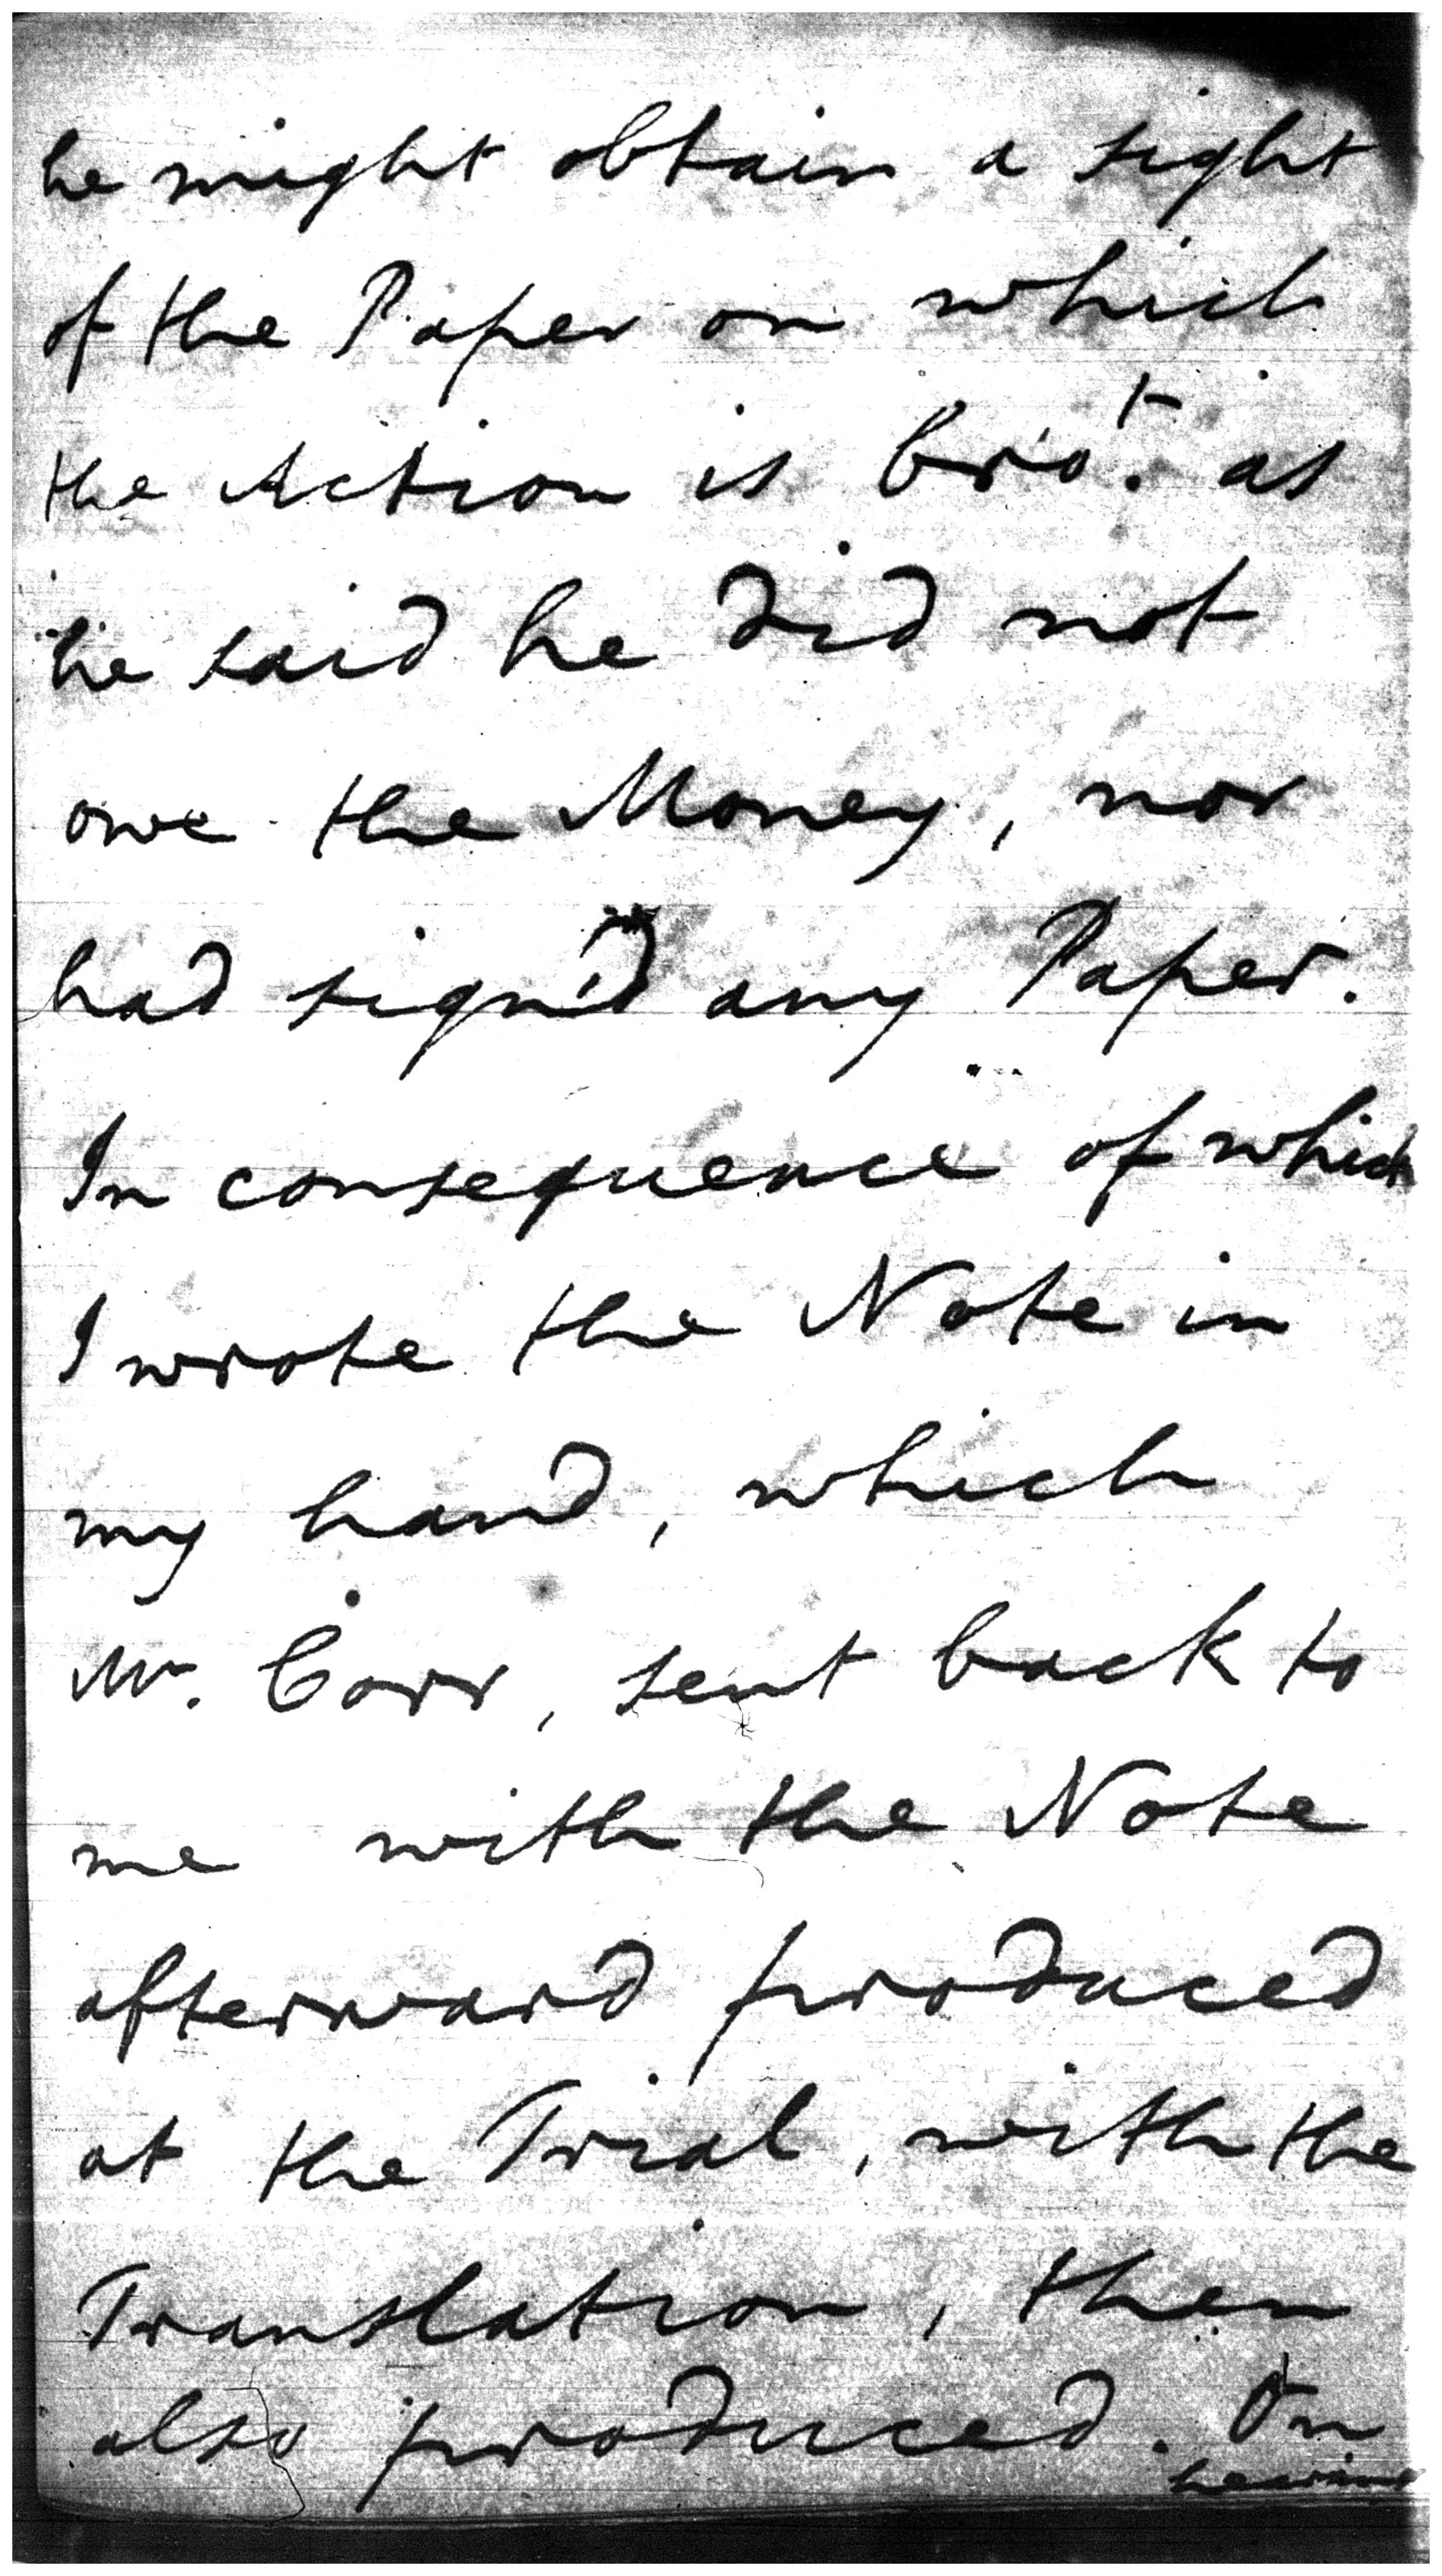 he might obtain a sight
of the Paper on which
the Action is bro.t as
he said he did not
owe the Money, nor
had sign'd any Paper.
In consequence of which
I wrote the Note in
my hand, which
Mr. Corr, sent back to
me with the Note
afterward produced
at the Trial, with the
Translation, then
also produced. On
hearing